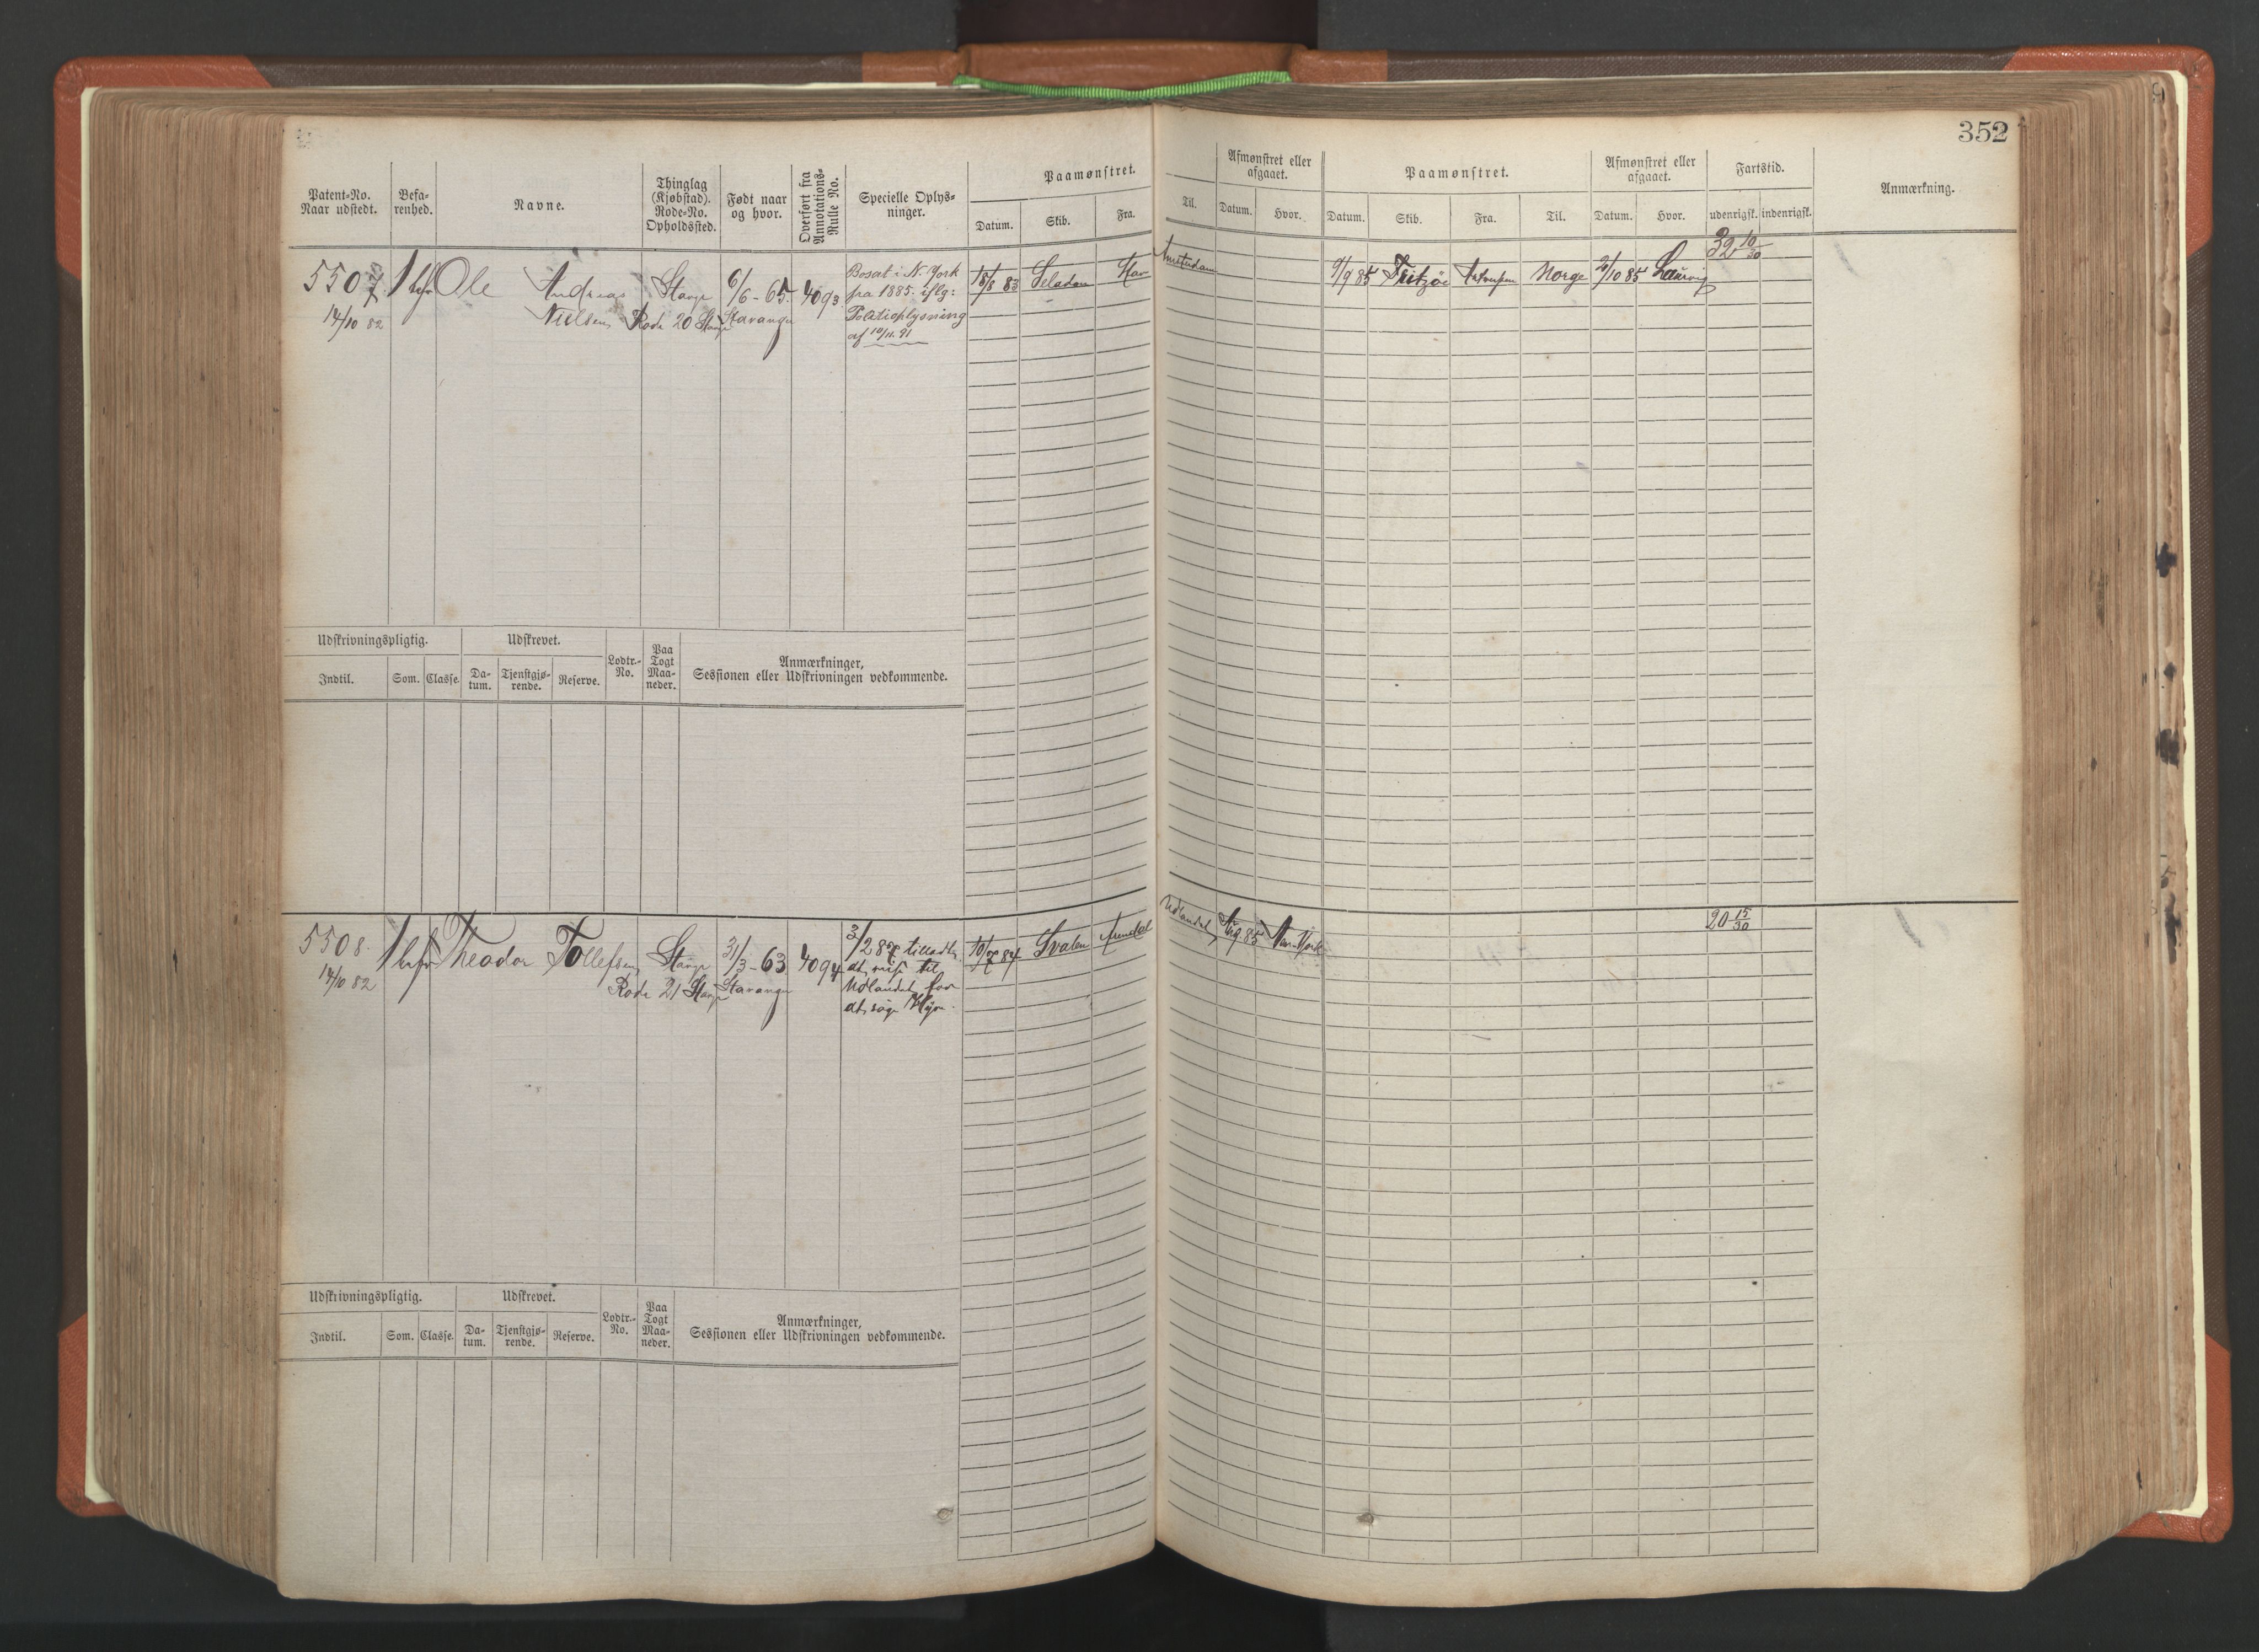 352
Patent-No. Naar udstedt.
Befa-renhed.
Navne.
Thinglag (Kjøbstad). Rode-No. Opholdssted.
Født naar og hvor.
Overført fra Annotations-Rulle No.
Specielle Oplys-ninger.
Paamønstret.
Datum. Skib. Fra. Til.
Afmønstret eller afgaaet.
Datum. Hvor.
Paamønstret.
Datum. Skib. Fra. Til.
Afmønstret eller afgaaet.
Datum. Hvor.
Fartstid.
udenrigsk. indenrigsk.
Anmærkning.
5507 1 bef Ole Andreas Stavgr 6/6-65 4093
14/10 82 Nielsen Rode 20 Stavgr Stavanger
Bosat i N. York
fra 1885. iflg:
Politioplysning
af 10/11.91
18/8 83 Seladon Stav Amsterdam
9/9 85 Fritzöe Antverpen Norge 2/10 85 Laurvig 32 10/30
Udskrivningspligtig. Udskrevet. Lodtr.-No. Paa Togt Maa-neder. Anmærkninger,
Indtil. Som. Classe. Da-tum. Tjenstgjø-rende. Reserve. Sessionen eller Udskrivningen vedkommende.
5508 1 bef Theodor Tollefsen Stavgr 31/3-63 4094
14/10 82 Rode 21 Stavgr Stavanger
3/2 87 tilladt
at reise til
Udlandet for
at søge Hyre.
10/7 84 Svalen Arendal Udlandet Aug 85 New-York 20 15/30
Udskrivningspligtig. Udskrevet. Lodtr.-No. Paa Togt Maa-neder. Anmærkninger,
Indtil. Som. Classe. Da-tum. Tjenstgjø-rende. Reserve. Sessionen eller Udskrivningen vedkommende.